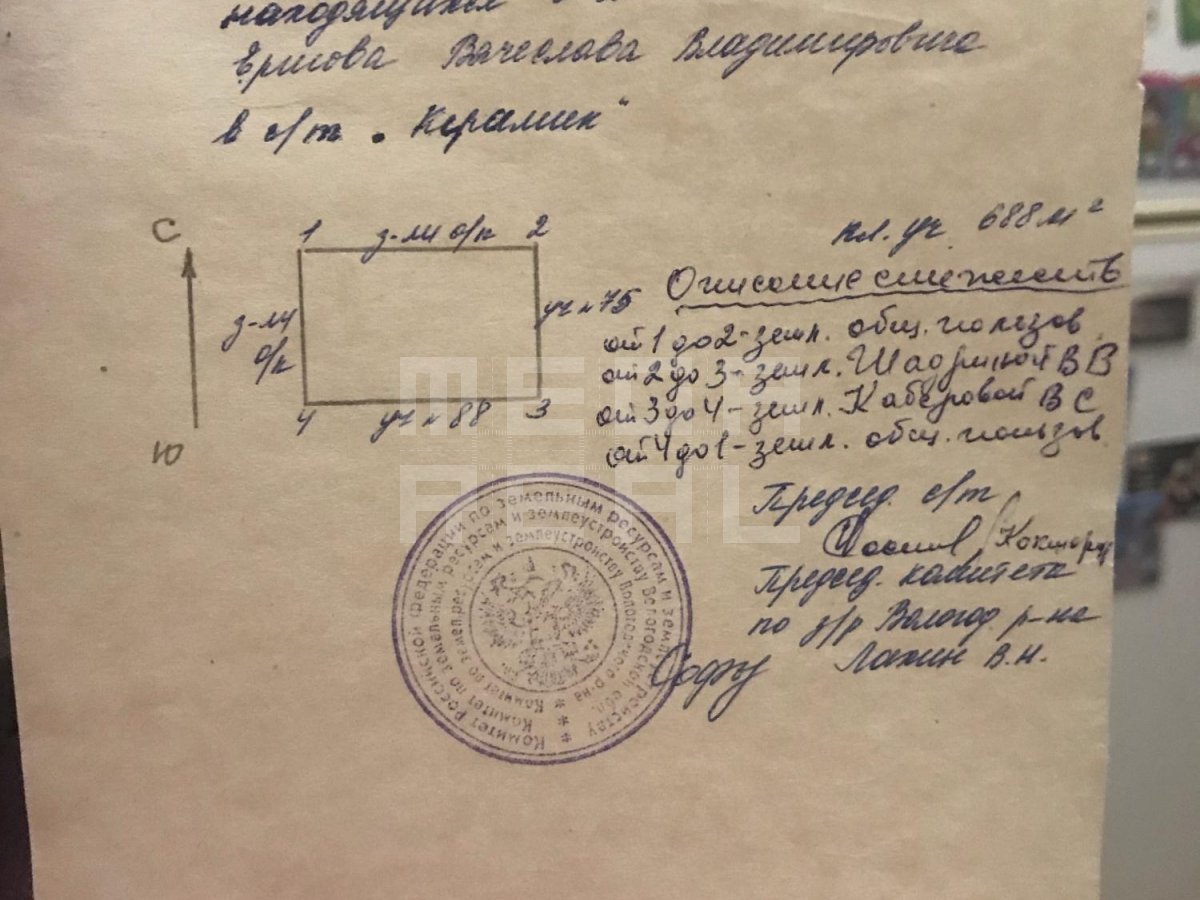 находящихся
Ершова Вячеслава Владимировича
в с/т „Керамик“
С
1 з-ли о/п 2
пл. уч. 688 м²
Описание смежеств
з-ли
о/п
уч № 75
от 1 до 2 - земл. общ. пользов.
от 2 до 3 - земл. Шадриной В В
4 уч № 88 3
от 3 до 4 - земл. Каберовой В С
Ю
от 4 до 1 - земл. общ. пользов.
MEGA
REAL
Председ. с/т
Председ. комитета
по з/р Вологод. р-на
Лахин В.Н.
Комитет Российской Федерации по земельным ресурсам и землеустройству
Комитет по земельным ресурсам и землеустройству Вологодской обл.
Комитет по земел. ресурсам и землеустройству Вологодского р-на